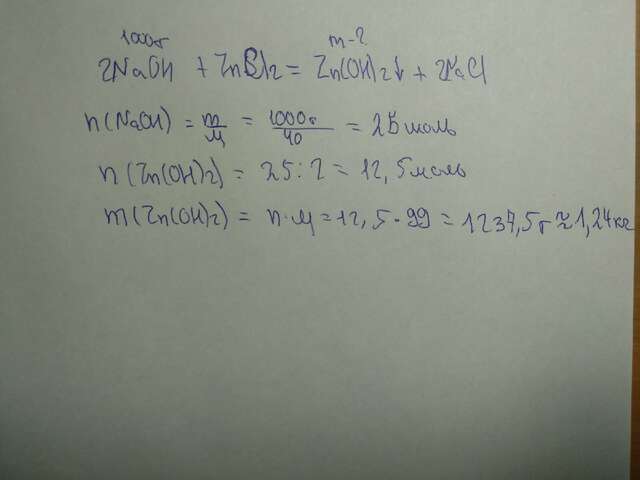 1000г m-?
2NaOH + ZnCl2 = Zn(OH)2↓ + 2NaCl
n(NaOH) = m/M = 1000г/40 = 25 моль
n(Zn(OH)2) = 25:2 = 12,5 моль
m(Zn(OH)2) = n·M = 12,5·99 = 1237,5г ≈ 1,24кг